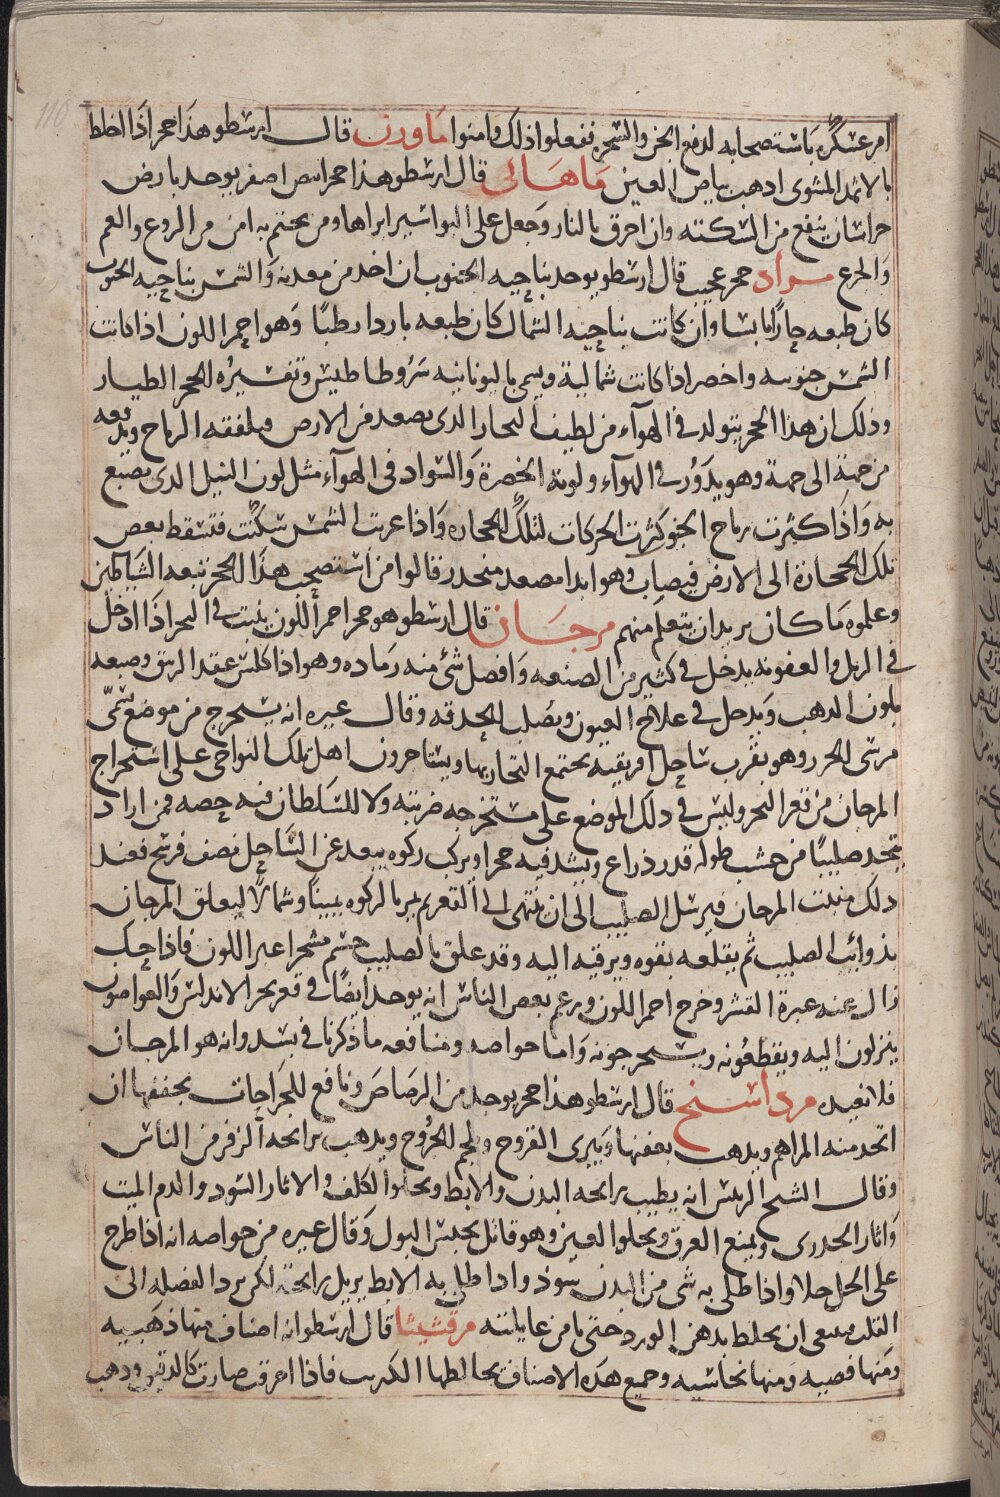 امر عسكره باستصحابه لدفع الجن والسحر ففعلوا ذلك وامنوا ماورن قال ارسطو هذا حجر اذا اخلط
بالاثمد المشوى اذهب بياض العين ماهانى قال ارسطو هذا حجر ابيض اصفر يوجد بارض
خراسان ينفع من السكته وان احرق بالنار وجعل على البواسير ابراها ومن يختم به امن من الروع والغم
والجزع مراد حجر عجيب قال ارسطو يوجد بناحيه الجنوب ان اخذ من معدنه والشمس بناحيه الجنوب
كان طبعه حارًا يابسا وان كانت بناحيه الشمال كان طبعه باردا رطبًا وهو احمر اللون اذا كانت
الشمس جنوبيه واخضر اذا كانت شمالية ويسمى باليونانيه سروطاطيس وتفسيره الحجر الطيار
وذلك ان هذا الحجر يتولد فى الهوآء من لطيف البخار الذى يصعد من الارض فيلفقه الرياح ويدفعه
من جهة الى جهة وهو يدور فى الهوآء ولونه الخضرة والسواد فى الهوآء مثل لون النيل الذى يصبغ
به واذا كثرت رياح الجو كثرت الحركات لتلك الحجاره واذا غربت الشمس سكنت فتسقط بعض
تلك الحجارة الى الارض فيصاب وهو ابدا مصعد منحدر قالوا من استصحب هذا الحجر تبعه الشياطين
وعلموه ما كان يريد ان يتعلم منهم مرجان قال ارسطو هو حجر احمر اللون ينبت فى البحر اذا ادخل
فى الزبل والعفونه يدخل فى كثير من الصنعه وافضل شئ منه رماده وهو اذا كلس عقد الزيبق وصبغه
بلون الذهب ويدخل فى علاج العيون ويصلب الحدقه وقال غيره انه يستخرج من موضع يسمى
مرسى الخرز وهو بقرب ساحل افريقيه يجتمع التجار بها ويستاجرون اهل تلك النواحى على استخراج
المرجان من قعر البحر وليس فى ذلك الموضع على مستخرجه ضريبه ولا للسلطان فيه حصه فمن اراد
يتخذ صليبًا من خشب طوله قدر ذراع ويشد فيه حجرا ويركب ركوه يبعد عن الساحل نصف فرسخ فعند
ذلك منبت المرجان فيرسل الصليب الى ان ينتهى الى القعر يمر بالركوه يمينًا وشمالًا ليعلق المرجان
بذوائب الصليب ثم يقلعه بقوه ويرقيه اليه وقد علق بالصليب جسم مشجر اغبر اللون فاذا حك
زال عنه غبرة القشر وخرج احمر اللون وزعم بعض الناس انه يوجد ايضًا فى قعر بحر الاندلس والغواصون
ينزلون اليه ويقطعونه ويستخرجونه واما خواصه ومنافعه ما ذكرنا فى بسد وانه هو المرجان
فلا نعيده مرداسنج قال ارسطو هذا حجر يوجد من الرصاص ونافع للجراحات بجففها ان
اتخذ منه المراهم ويذهب بعفنها ويبرى القروح ويلحم الجروح ويذهب برايحه الزفر من الناس
وقال الشيخ الرئيس انه يطيب رايحه البدن والابط ويجلوا الكلف والاثار السود والدم الميت
واثار الجدرى ويمنع العرق ويجلوا العين وهو قاتل يحبس البول وقال غيره من خواصه انه اذا طرح
على الخل حلا واذا طلى به شى من البدن سود واذا طلى به الابط يزيل رايحته لكن يرد الفضله الى
القلب فينبغى ان يخلط بدهن الورد حتى يامن غايلته مرقشيثا قال ارسطو انه اصناف منها ذهبيه
ومنها فضيه ومنها نحاسيه وجميع هذه الاصناف يخالطها الكبريت فاذا احرقت صارت كالدقيق وذهب